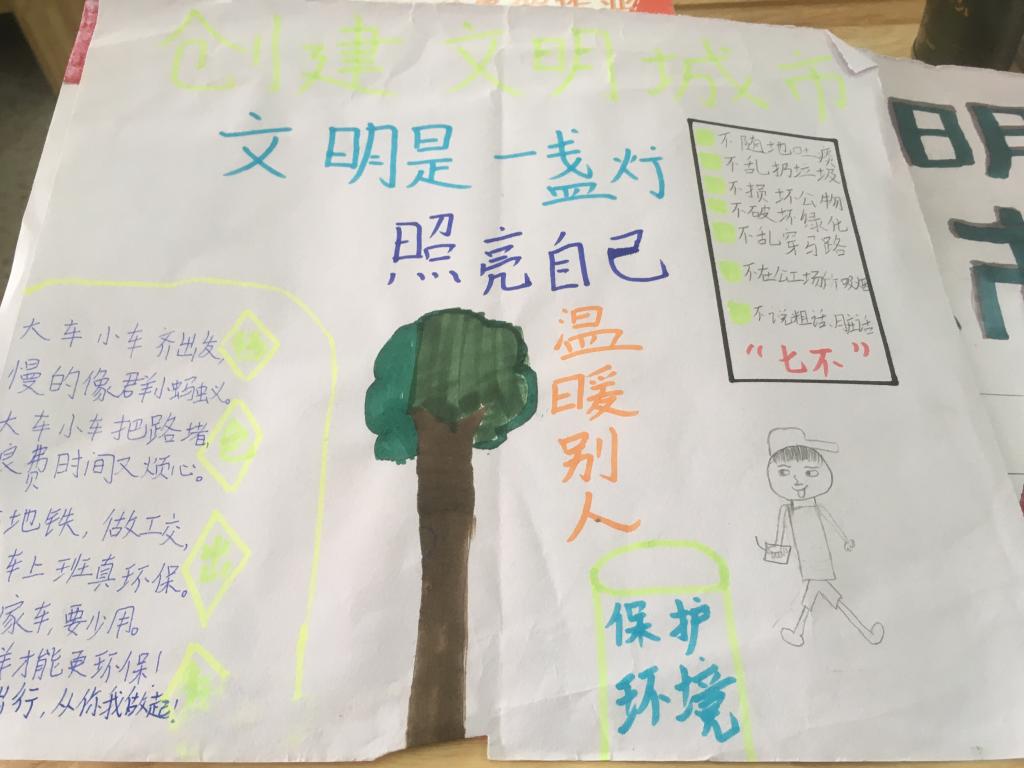 创建文明城市
文明是一盏灯
照亮自己
温暖别人
不随地吐痰
不乱扔垃圾
不损坏公物
不破坏绿化
不乱穿马路
不在公工场所吸烟
不说粗话、脏话
“七不”
大车小车齐出发,
慢的像群小蚂蚁。
大车小车把路堵,
浪费时间又烦心。
地铁，做工交,
车上班真环保。
家车,要少用。
样才能更环保!
出行,从你我做起!
绿
色
出
保护
环境
明
市